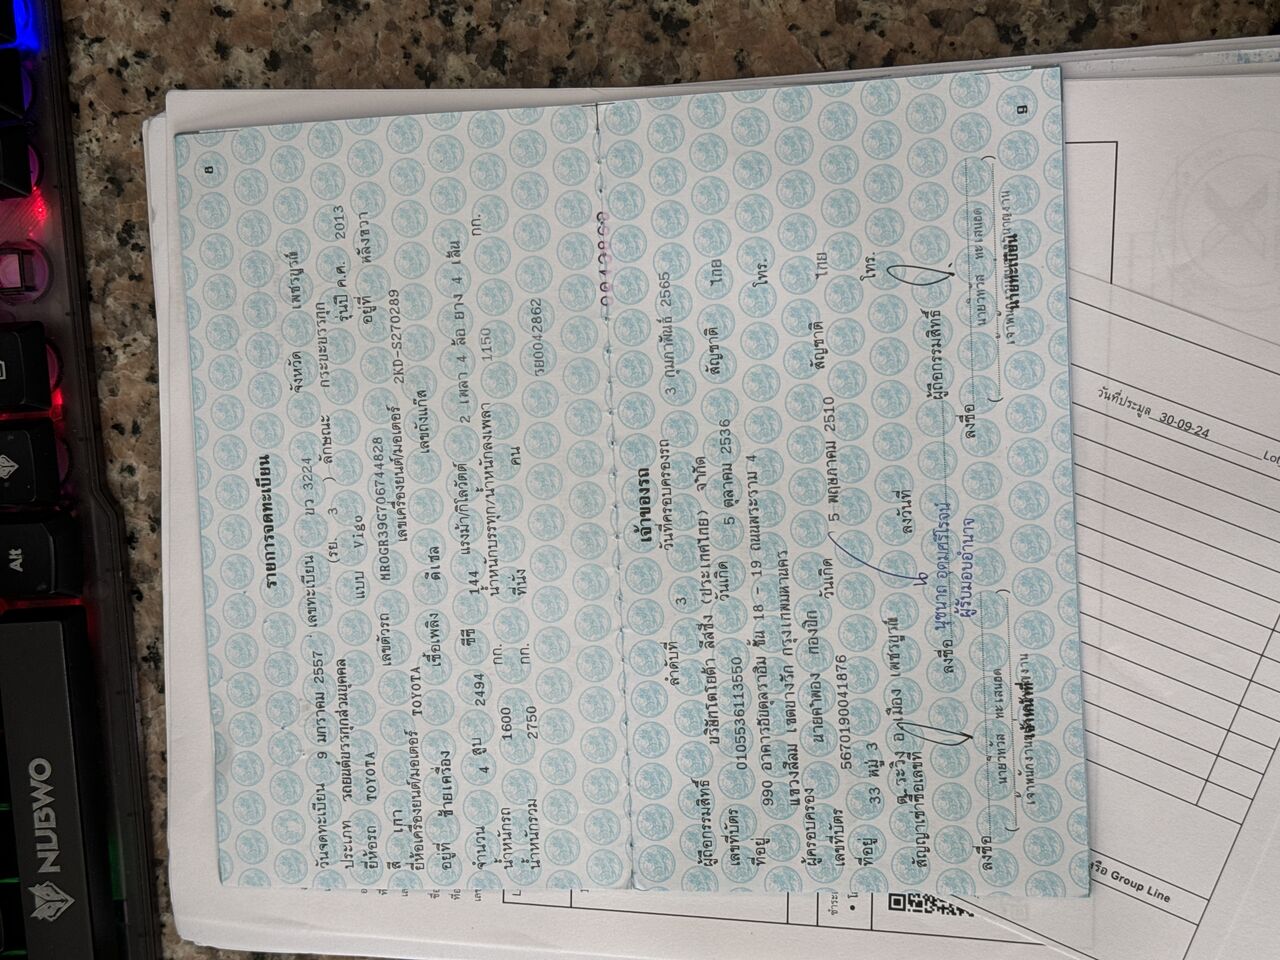 8
รายการจดทะเบียน
วันจดทะเบียน 9 มกราคม 2557 เลขทะเบียน ขว 3224 จังหวัด เพชรบูรณ์
ประเภท รถยนต์บรรทุกส่วนบุคคล (รย. 3 ) ลักษณะ กระบะบรรทุก
ยี่ห้อรถ TOYOTA แบบ Vigo รุ่นปี ค.ศ. 2013
สี เทา เลขตัวรถ MR0GR39G706744828 อยู่ที่ หลังขวา
ยี่ห้อเครื่องยนต์/มอเตอร์ TOYOTA เลขเครื่องยนต์/มอเตอร์ 2KD-S270289
อยู่ที่ ซ้ายเครื่อง เชื้อเพลิง ดีเซล เลขถังแก๊ส
จำนวน 4 สูบ 2494 ซีซี 144 แรงม้า/กิโลวัตต์ 2 เพลา 4 ล้อ ยาง 4 เส้น
น้ำหนักรถ 1600 กก. น้ำหนักบรรทุก/น้ำหนักลงเพลา 1150 กก.
น้ำหนักรวม 2750 กก. ที่นั่ง คน
รย0042862
9
เจ้าของรถ
ลำดับที่ 3 วันที่ครอบครองรถ 3 กุมภาพันธ์ 2565
ผู้ถือกรรมสิทธิ์ บริษัทโตโยต้า ลีสซิ่ง (ประเทศไทย) จำกัด
เลขที่บัตร 0105536113550 วันเกิด 5 ตุลาคม 2536 สัญชาติ ไทย
ที่อยู่ 990 อาคารอับดุลราฮิม ชั้น 18 - 19 ถนนพระราม 4 โทร.
แขวงสีลม เขตบางรัก กรุงเทพมหานคร
ผู้ครอบครอง นายคำพอง กองปิก
เลขที่บัตร 5670190041876 วันเกิด 5 พฤษภาคม 2510 สัญชาติ ไทย
ที่อยู่ 33 หมู่ 3 โทร.
ต.ระวิง อ.เมือง เพชรบูรณ์
สัญญาเช่าซื้อเลขที่ ลงวันที่
ลงชื่อ นุชนาถ อุดมศรีโรจน์ ผู้ถือกรรมสิทธิ์
ผู้รับมอบอำนาจ
ลงชื่อ ลงชื่อ
นายวทัส ทะเสนฮด นายวทัส ทะเสนฮด
เจ้าหน้าที่ นายทะเบียน
NUBWO
Alt
วันที่ประมูล 30-09-24
Group Line